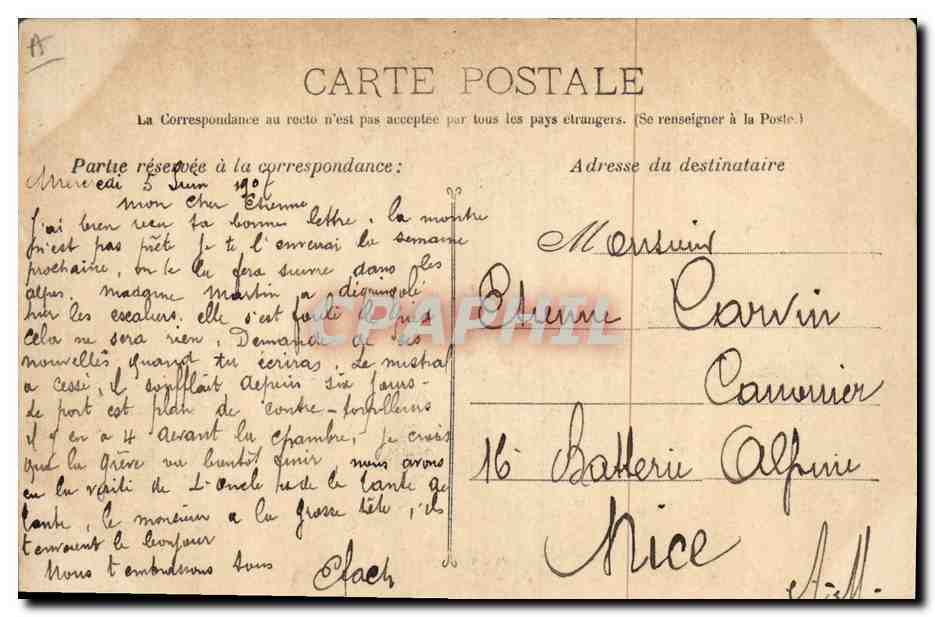 A
CARTE POSTALE
La Correspondance au recto n'est pas acceptée par tous les pays étrangers. (Se renseigner à la Poste.)
Partie réservée à la correspondance :
Adresse du destinataire
Mercredi 5 Juin 1907
Mon cher Etienne
J'ai bien recu ta bonne lettre, la montre
n'est pas prête je te l'enverrai la semaine
prochaine, on te la fera suivre dans les
alpes. madame Martin a dégringolé
hier les escaliers, elle s'est foulé le
cela ne sera rien, Demande de ses
nouvelles quand tu écriras, Le mistral
a cessé, il soufflait depuis six jours -
Le port est plein de contre-torpilleurs
il y en a 4 devant la chambre, je crois
que la grève va bientôt finir, nous avons
eu la visite de L'oncle de la tante
tante, le monsieur a la grosse tête, ils
t'envoient le bonjour
Nous t'embrassons tous
Monsieur
Etienne Carvin
Canonnier
16e Batterie Alpine
Nice
A-M.
CPAPHIL